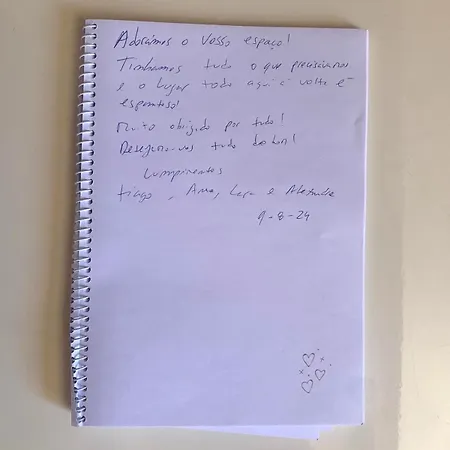 Adorámos o Vosso espaço!
Tinhamos tudo o que precisávamos
e o lugar todo aqui à volta é
espantoso!
Muito obrigado por tudo!
Desejamos-vos tudo de bom!
Cumprimentos
Tiago, Ana, e Alexandre
9-8-24